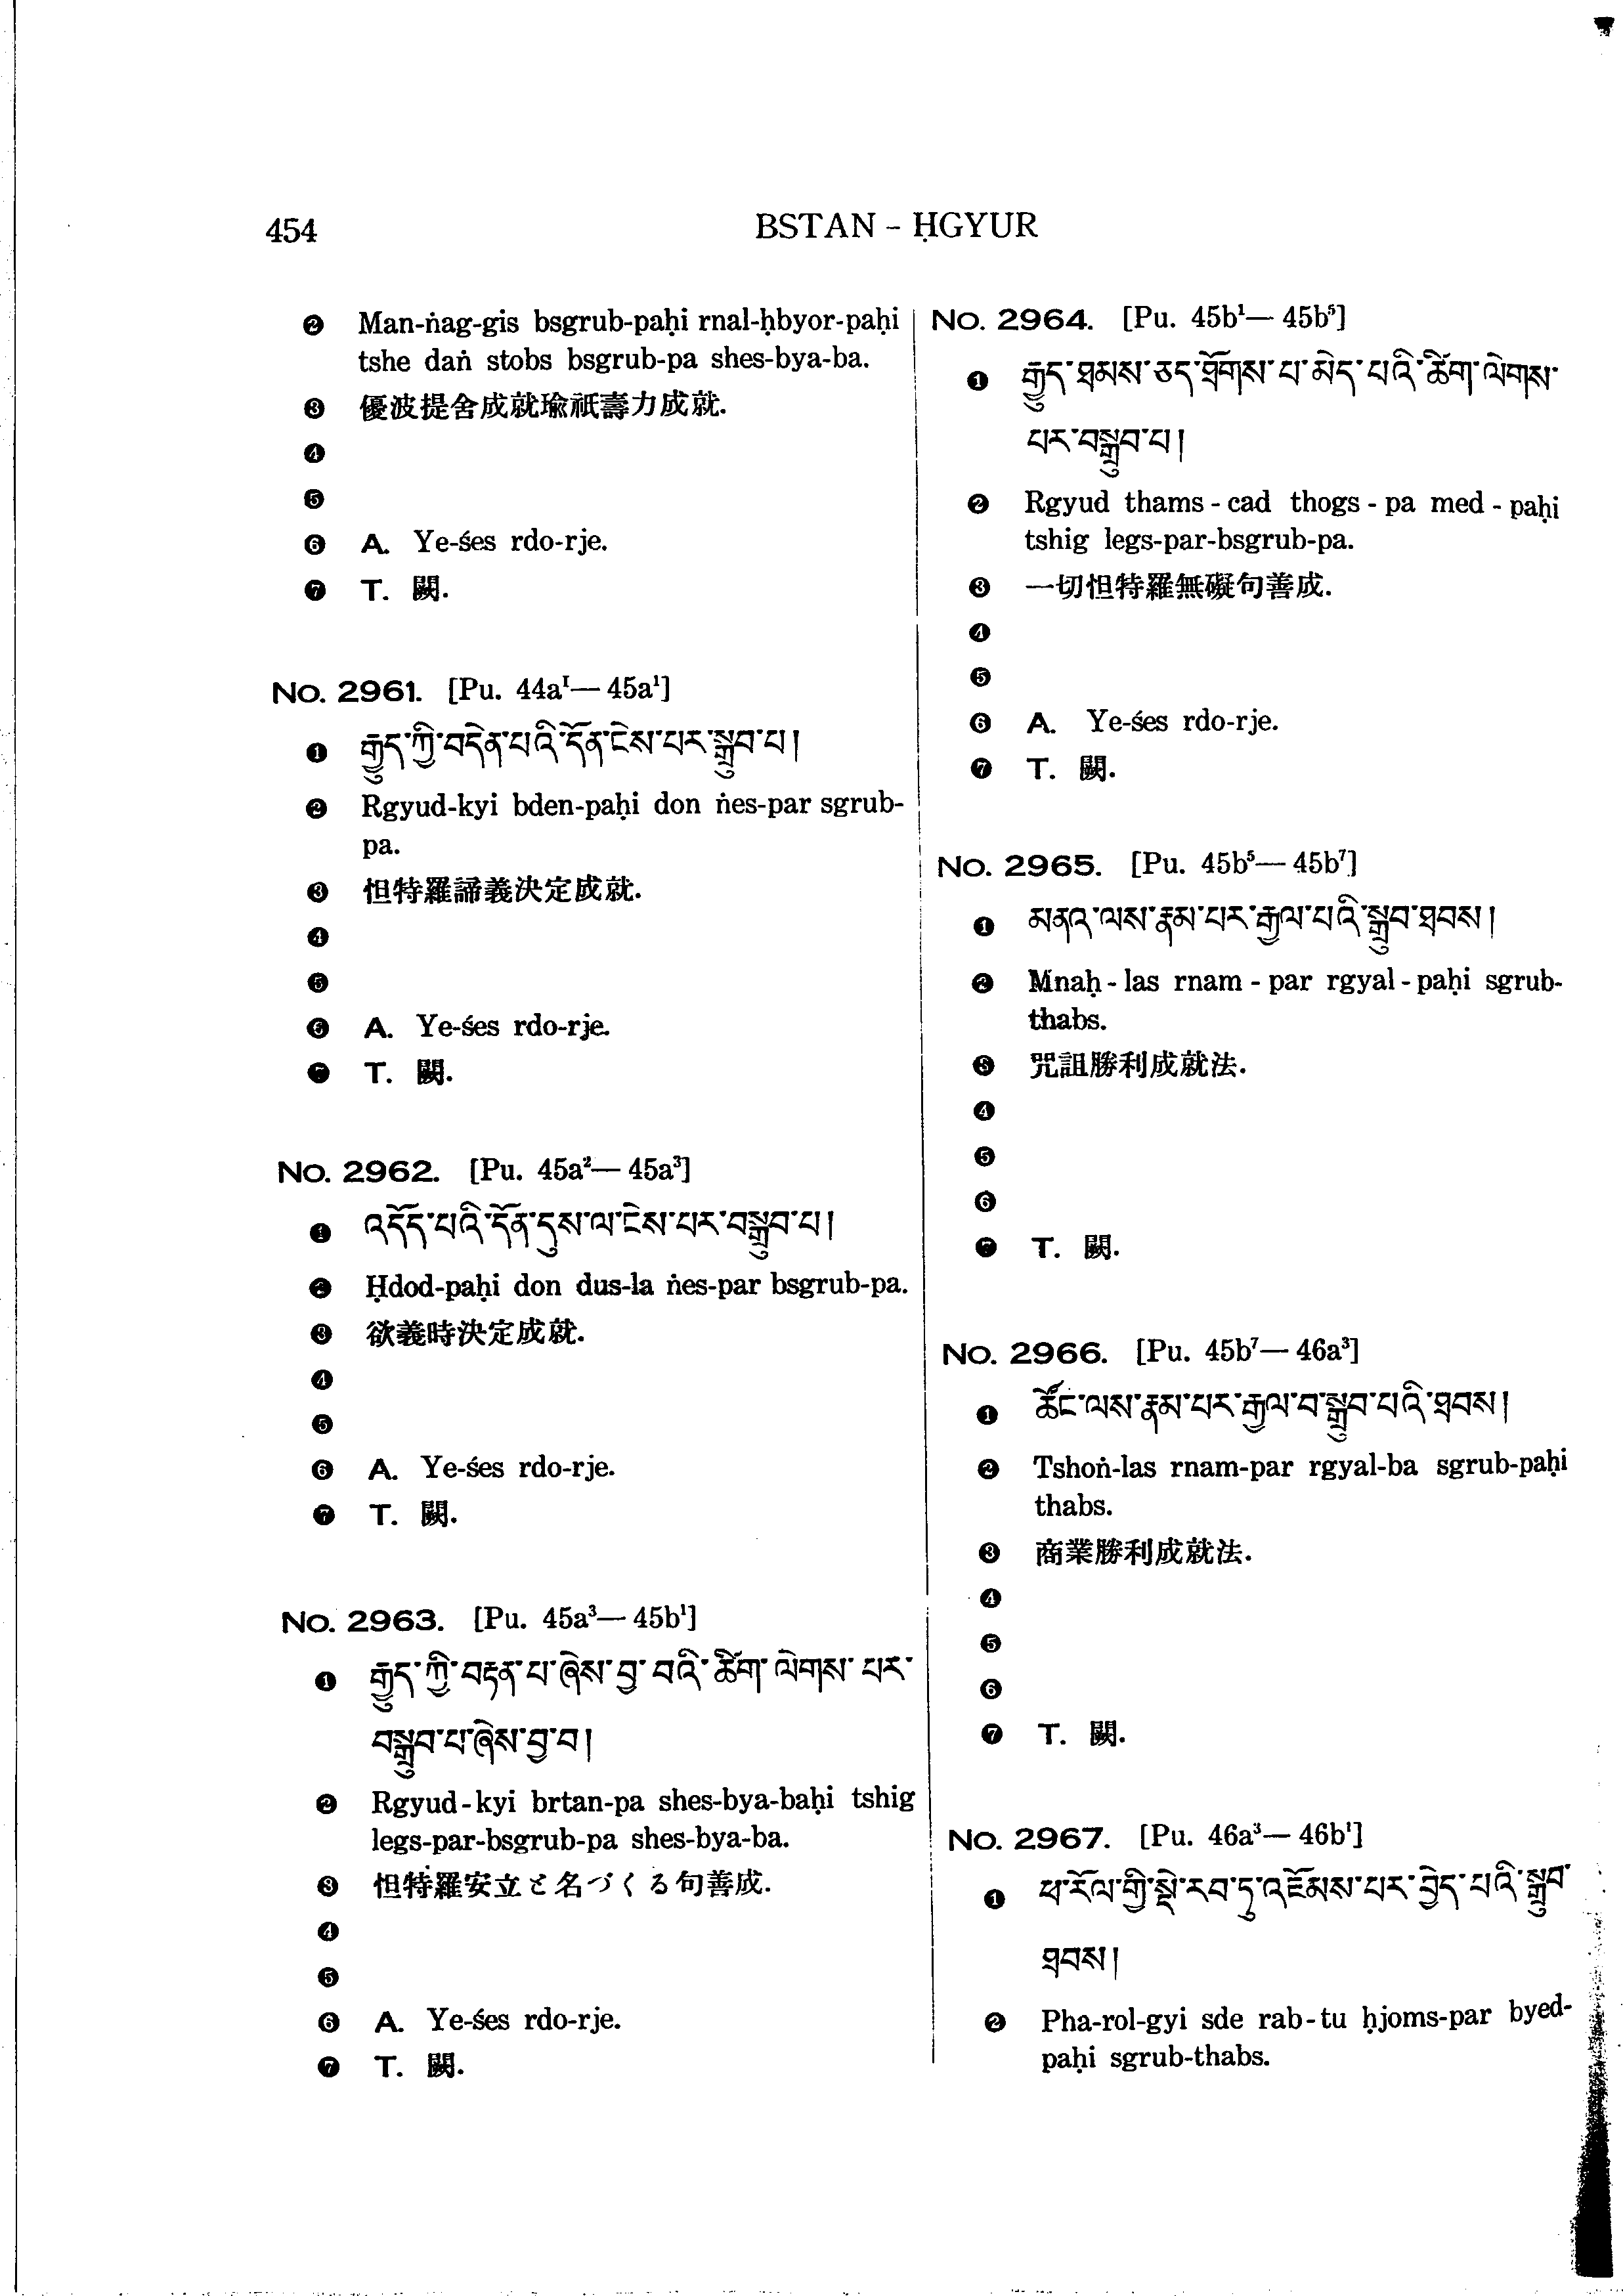 454
BSTAN – ḤGYUR
❷ Man-ṅag-gis bsgrub-paḥi rnal-ḥbyor-paḥi
tshe daṅ stobs bsgrub-pa shes-bya-ba.
❸ 優波提舍成就瑜祇壽力成就.
❹
❺
❻ A. Ye-śes rdo-rje.
❼ T. 闕.
No. 2961. [Pu. 44a¹— 45a¹]
❶ རྒྱུད་ཀྱི་བདེན་པའི་དོན་ངེས་པར་སྒྲུབ་པ།
❷ Rgyud-kyi bden-paḥi don ṅes-par sgrub-
pa.
❸ 怛特羅諦義決定成就.
❹
❺
❻ A. Ye-śes rdo-rje.
❼ T. 闕.
No. 2962. [Pu. 45a²— 45a³]
❶ འདོད་པའི་དོན་དུས་ལ་ངེས་པར་བསྒྲུབ་པ།
❷ Ḥdod-paḥi don dus-la ṅes-par bsgrub-pa.
❸ 欲義時決定成就.
❹
❺
❻ A. Ye-śes rdo-rje.
❼ T. 闕.
No. 2963. [Pu. 45a³— 45b¹]
❶ རྒྱུད་ཀྱི་བརྟན་པ་ཞེས་བྱ་བའི་ཚིག་ལེགས་པར་
བསྒྲུབ་པ་ཞེས་བྱ་བ།
❷ Rgyud-kyi brtan-pa shes-bya-baḥi tshig
legs-par-bsgrub-pa shes-bya-ba.
❸ 怛特羅安立と名づくる句善成.
❹
❺
❻ A. Ye-śes rdo-rje.
❼ T. 闕.
No. 2964. [Pu. 45b¹— 45b⁵]
❶ རྒྱུད་ཐམས་ཅད་ཐོགས་པ་མེད་པའི་ཚིག་ལེགས་
པར་བསྒྲུབ་པ།
❷ Rgyud thams-cad thogs-pa med-paḥi
tshig legs-par-bsgrub-pa.
❸ 一切怛特羅無礙句善成.
❹
❺
❻ A. Ye-śes rdo-rje.
❼ T. 闕.
No. 2965. [Pu. 45b⁵— 45b⁷]
❶ མནའ་ལས་རྣམ་པར་རྒྱལ་པའི་སྒྲུབ་ཐབས།
❷ Mnaḥ-las rnam-par rgyal-paḥi sgrub-
thabs.
❸ 咒詛勝利成就法.
❹
❺
❻
❼ T. 闕.
No. 2966. [Pu. 45b⁷— 46a³]
❶ ཚོང་ལས་རྣམ་པར་རྒྱལ་བ་སྒྲུབ་པའི་ཐབས།
❷ Tshoṅ-las rnam-par rgyal-ba sgrub-paḥi
thabs.
❸ 商業勝利成就法.
❹
❺
❻
❼ T. 闕.
No. 2967. [Pu. 46a³— 46b¹]
❶ ཕ་རོལ་གྱི་སྡེ་རབ་ཏུ་འཇོམས་པར་བྱེད་པའི་སྒྲུབ་
ཐབས།
❷ Pha-rol-gyi sde rab-tu ḥjoms-par byed-
paḥi sgrub-thabs.